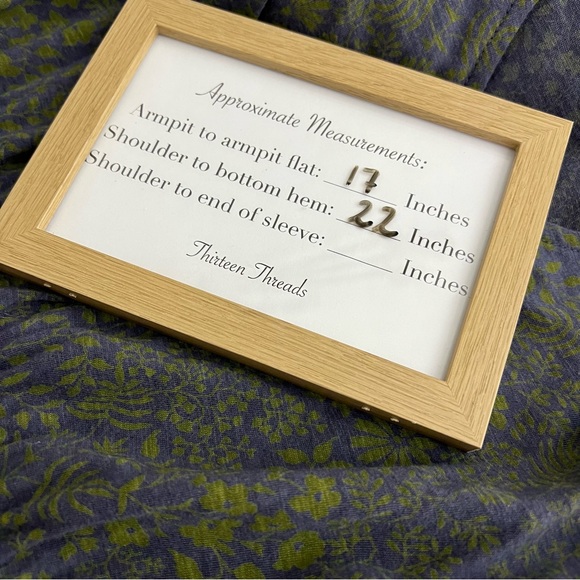 Approximate Measurements:
Armpit to armpit flat: 17 Inches
Shoulder to bottom hem: 22 Inches
Shoulder to end of sleeve: ______ Inches
Thirteen Threads